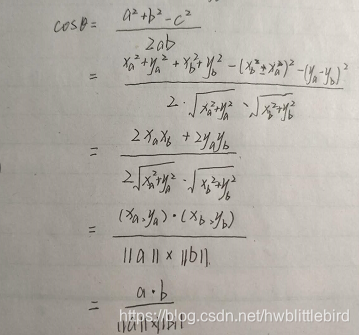 cosθ = a²+b²-c² / 2ab
= xₐ²+yₐ²+x_b²+y_b² - (x_b²±xₐ²)² - (yₐ-y_b)² / 2·√(xₐ²+yₐ²)·√(x_b²+y_b²)
= 2xₐx_b + 2yₐy_b / 2√(xₐ²+yₐ²)·√(x_b²+y_b²)
= (xₐ,yₐ)·(x_b,y_b) / ||a||×||b||
= a·b / ||a||×||b||
https://blog.csdn.net/hwblittlebird